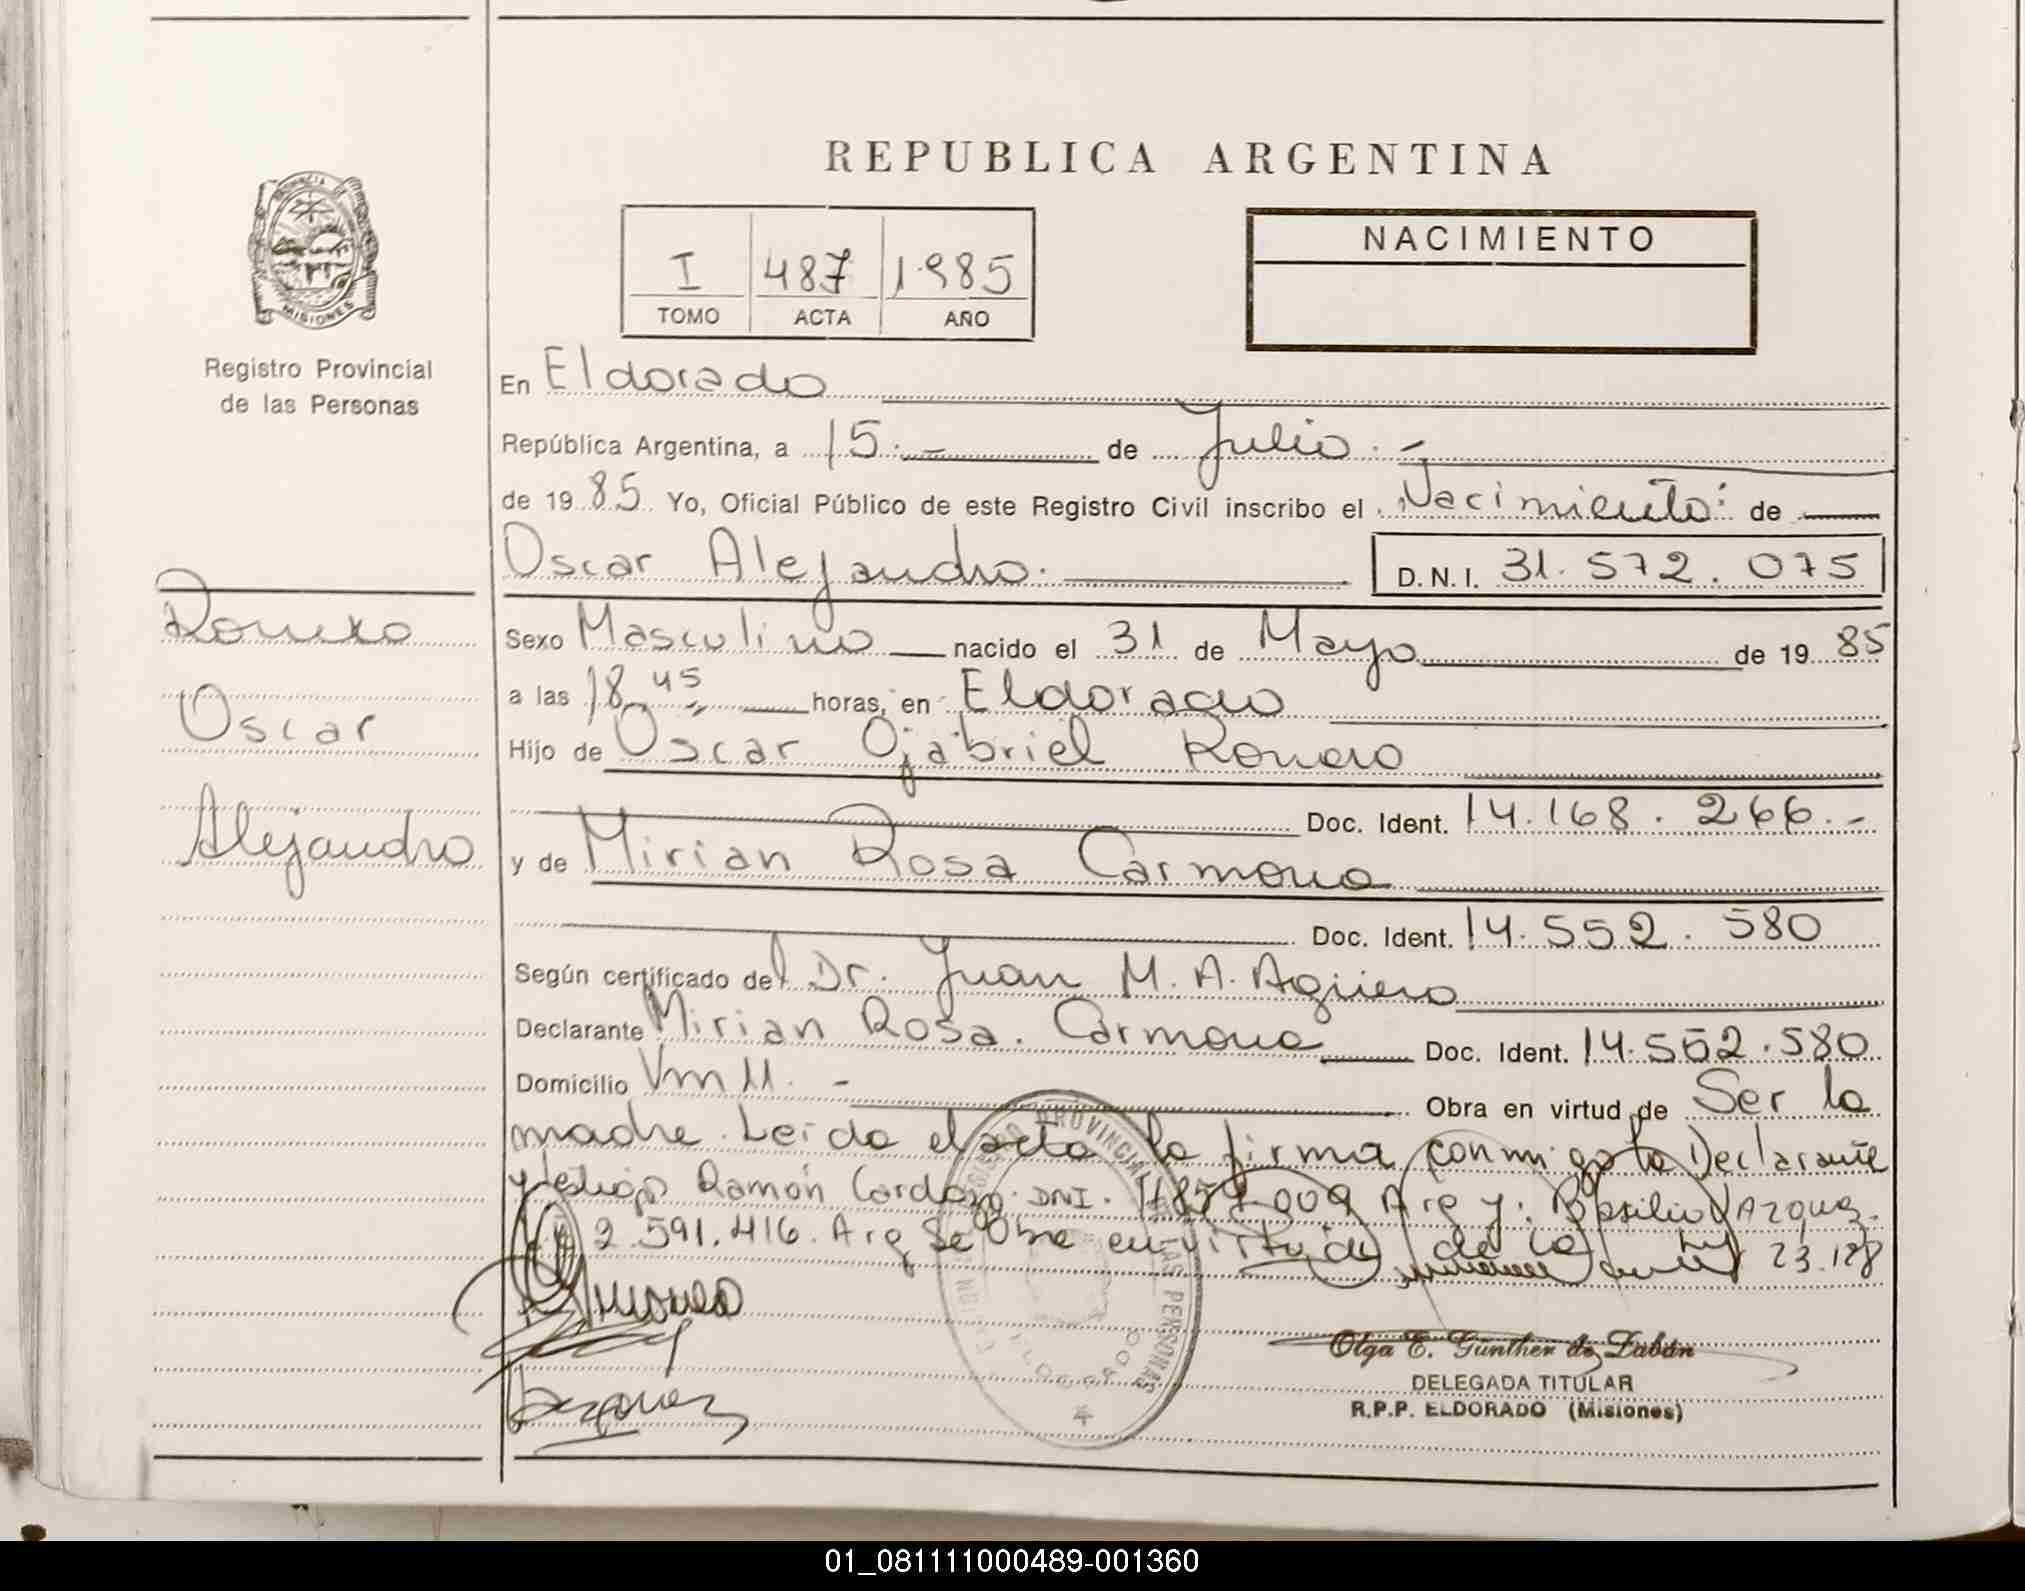 REPUBLICA ARGENTINA
PROVINCIA DE
MISIONES
Registro Provincial
de las Personas
I 487 1985
TOMO ACTA AÑO
NACIMIENTO
En Eldorado
República Argentina, a 15.- de Julio.-
de 1985. Yo, Oficial Público de este Registro Civil inscribo el Nacimiento: de
Oscar Alejandro. D.N.I. 31.572.075
Romero
Oscar
Alejandro
Sexo Masculino nacido el 31 de Mayo de 1985
a las 18,45 horas, en Eldorado
Hijo de Oscar Gabriel Romero
Doc. Ident. 14.168.266.-
y de Mirian Rosa Carmona
Doc. Ident. 14.552.580
Según certificado del Dr. Juan M. A. Agüero
Declarante Mirian Rosa. Carmona Doc. Ident. 14.552.580
Domicilio Vm 11.- Obra en virtud de Ser la
madre. Leida el acta la firma conmigo la Declarante
y testigos Ramón Cardozo. DNI. Arg y: Basilio Vazquez.
2.591.416. Arg Se Obra en virtud de la ley 23.128
REGISTRO PROVINCIAL DE LAS PERSONAS
ELDORADO
Vazquez
Olga E. Günther de Labán
DELEGADA TITULAR
R.P.P. ELDORADO (Misiones)
01_081111000489-001360